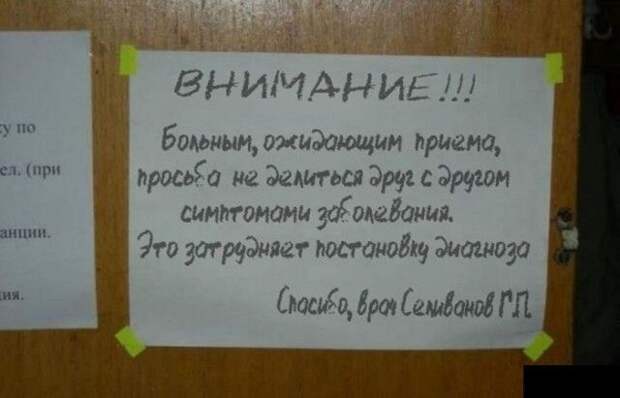 у по
ел. (при
анции.
ия.
ВНИМАНИЕ!!!
Больным, ожидающим приема,
просьба не делиться друг с другом
симптомами заболевания.
Это затрудняет постановку диагноза
Спасибо, врач Селиванов Г.П.